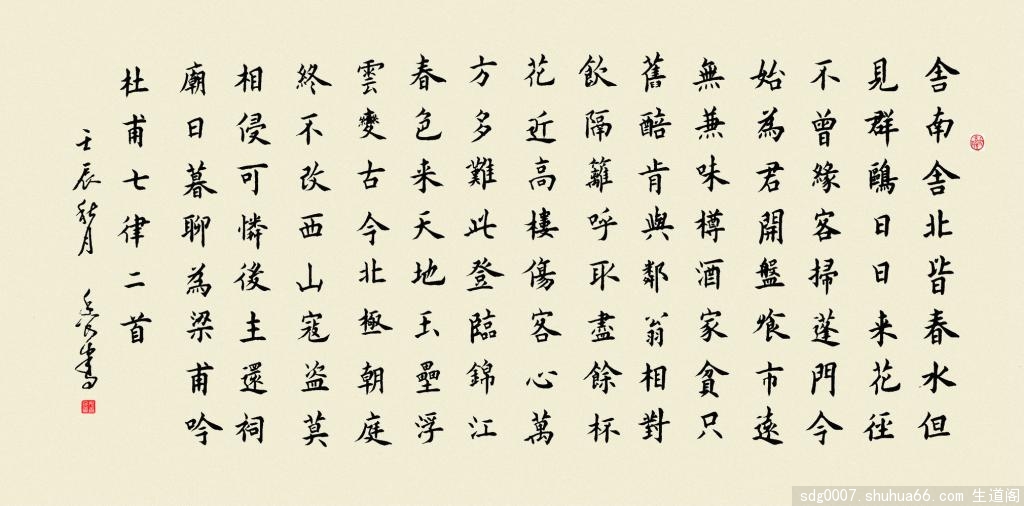 舍南舍北皆春水但
見群鷗日日来花径
不曾緣客掃蓬門今
始為君開盤飧市遠
無兼味樽酒家貧只
舊醅肯與鄰翁相對
飲隔籬呼取盡餘杯
花近高樓傷客心萬
方多難此登臨錦江
春色来天地玉壘浮
雲變古今北極朝庭
終不改西山寇盜莫
相侵可憐後主還祠
廟日暮聊為梁甫吟
杜甫七律二首
壬辰秋月
sdg0007.shuhua66.com 生道阁